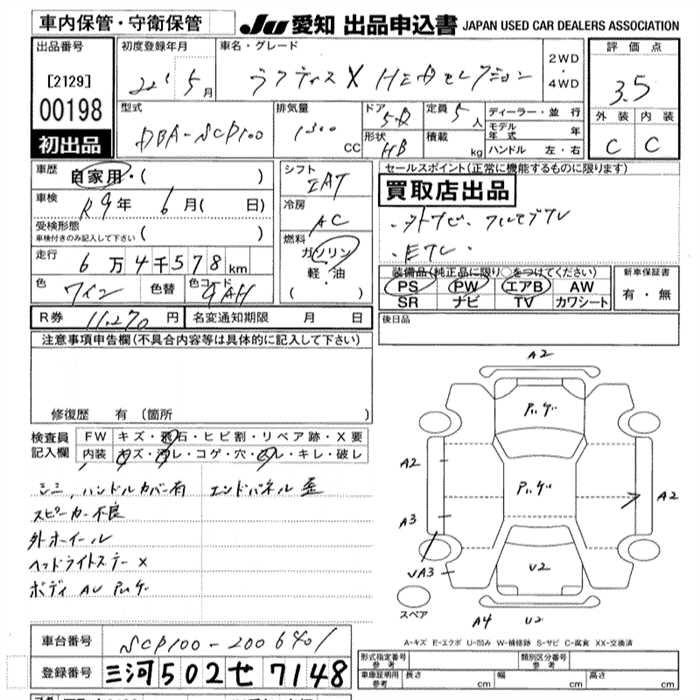 車内保管・守衛保管
JU 愛知 出品申込書 JAPAN USED CAR DEALERS ASSOCIATION
出品番号 初度登録年月 車名・グレード 2WD・4WD 評価点
[2129] 22年 5月 ラクティス X HIDセレクション 3.5
00198 型式 排気量 ドア 定員 ディーラー・並行 外装 内装
DBA-SCP100 1300 CC 5D 5人 モデル年式 年
初出品 形状 HB 積載 kg ハンドル 左・右 C C
車歴 自家用・( ) シフト セールスポイント(正常に機能するものに限ります)
車検 R9年 6月( 日) IAT 買取店出品
受検形態 冷房
車検付きのみ記入して下さい ( ) AC
走行 6万4千578km 燃料 ガソリン ・Eてレ・
軽・油 装備品(純正品に限り○をつけてください) 新車保証書
色 ワイン 色替 色コード ( ) PS PW エアB AW 有・無
SR ナビ TV カワシート
R券 11,270円 名変通知期限 月 日 後日品
注意事項申告欄(不具合内容等は具体的に記入して下さい)
修復歴 有(箇所 )
検査員 FW キズ・飛石・ヒビ割・リペア跡・X要
記入欄 内装 キズ・汚レ・コゲ・穴・スレ・キレ・破レ
シミ、ハンドルカバー有 エンドパネル歪
スピーカー不良
外ホイール
ヘッドライトステー X
ボディ AU
A2
A2
A3
VA3
A2
U2
A4 U2
スペア
A-キズ E-エクボ U-凹み W-補修跡 S-サビ C-腐食 XX-交換済
車台番号 SCP100-2006401
登録番号 三河502せ7148
型式指定番号 参考 類別区分番号 参考
車庫証明用 参考 長さ cm 幅 cm 高さ cm